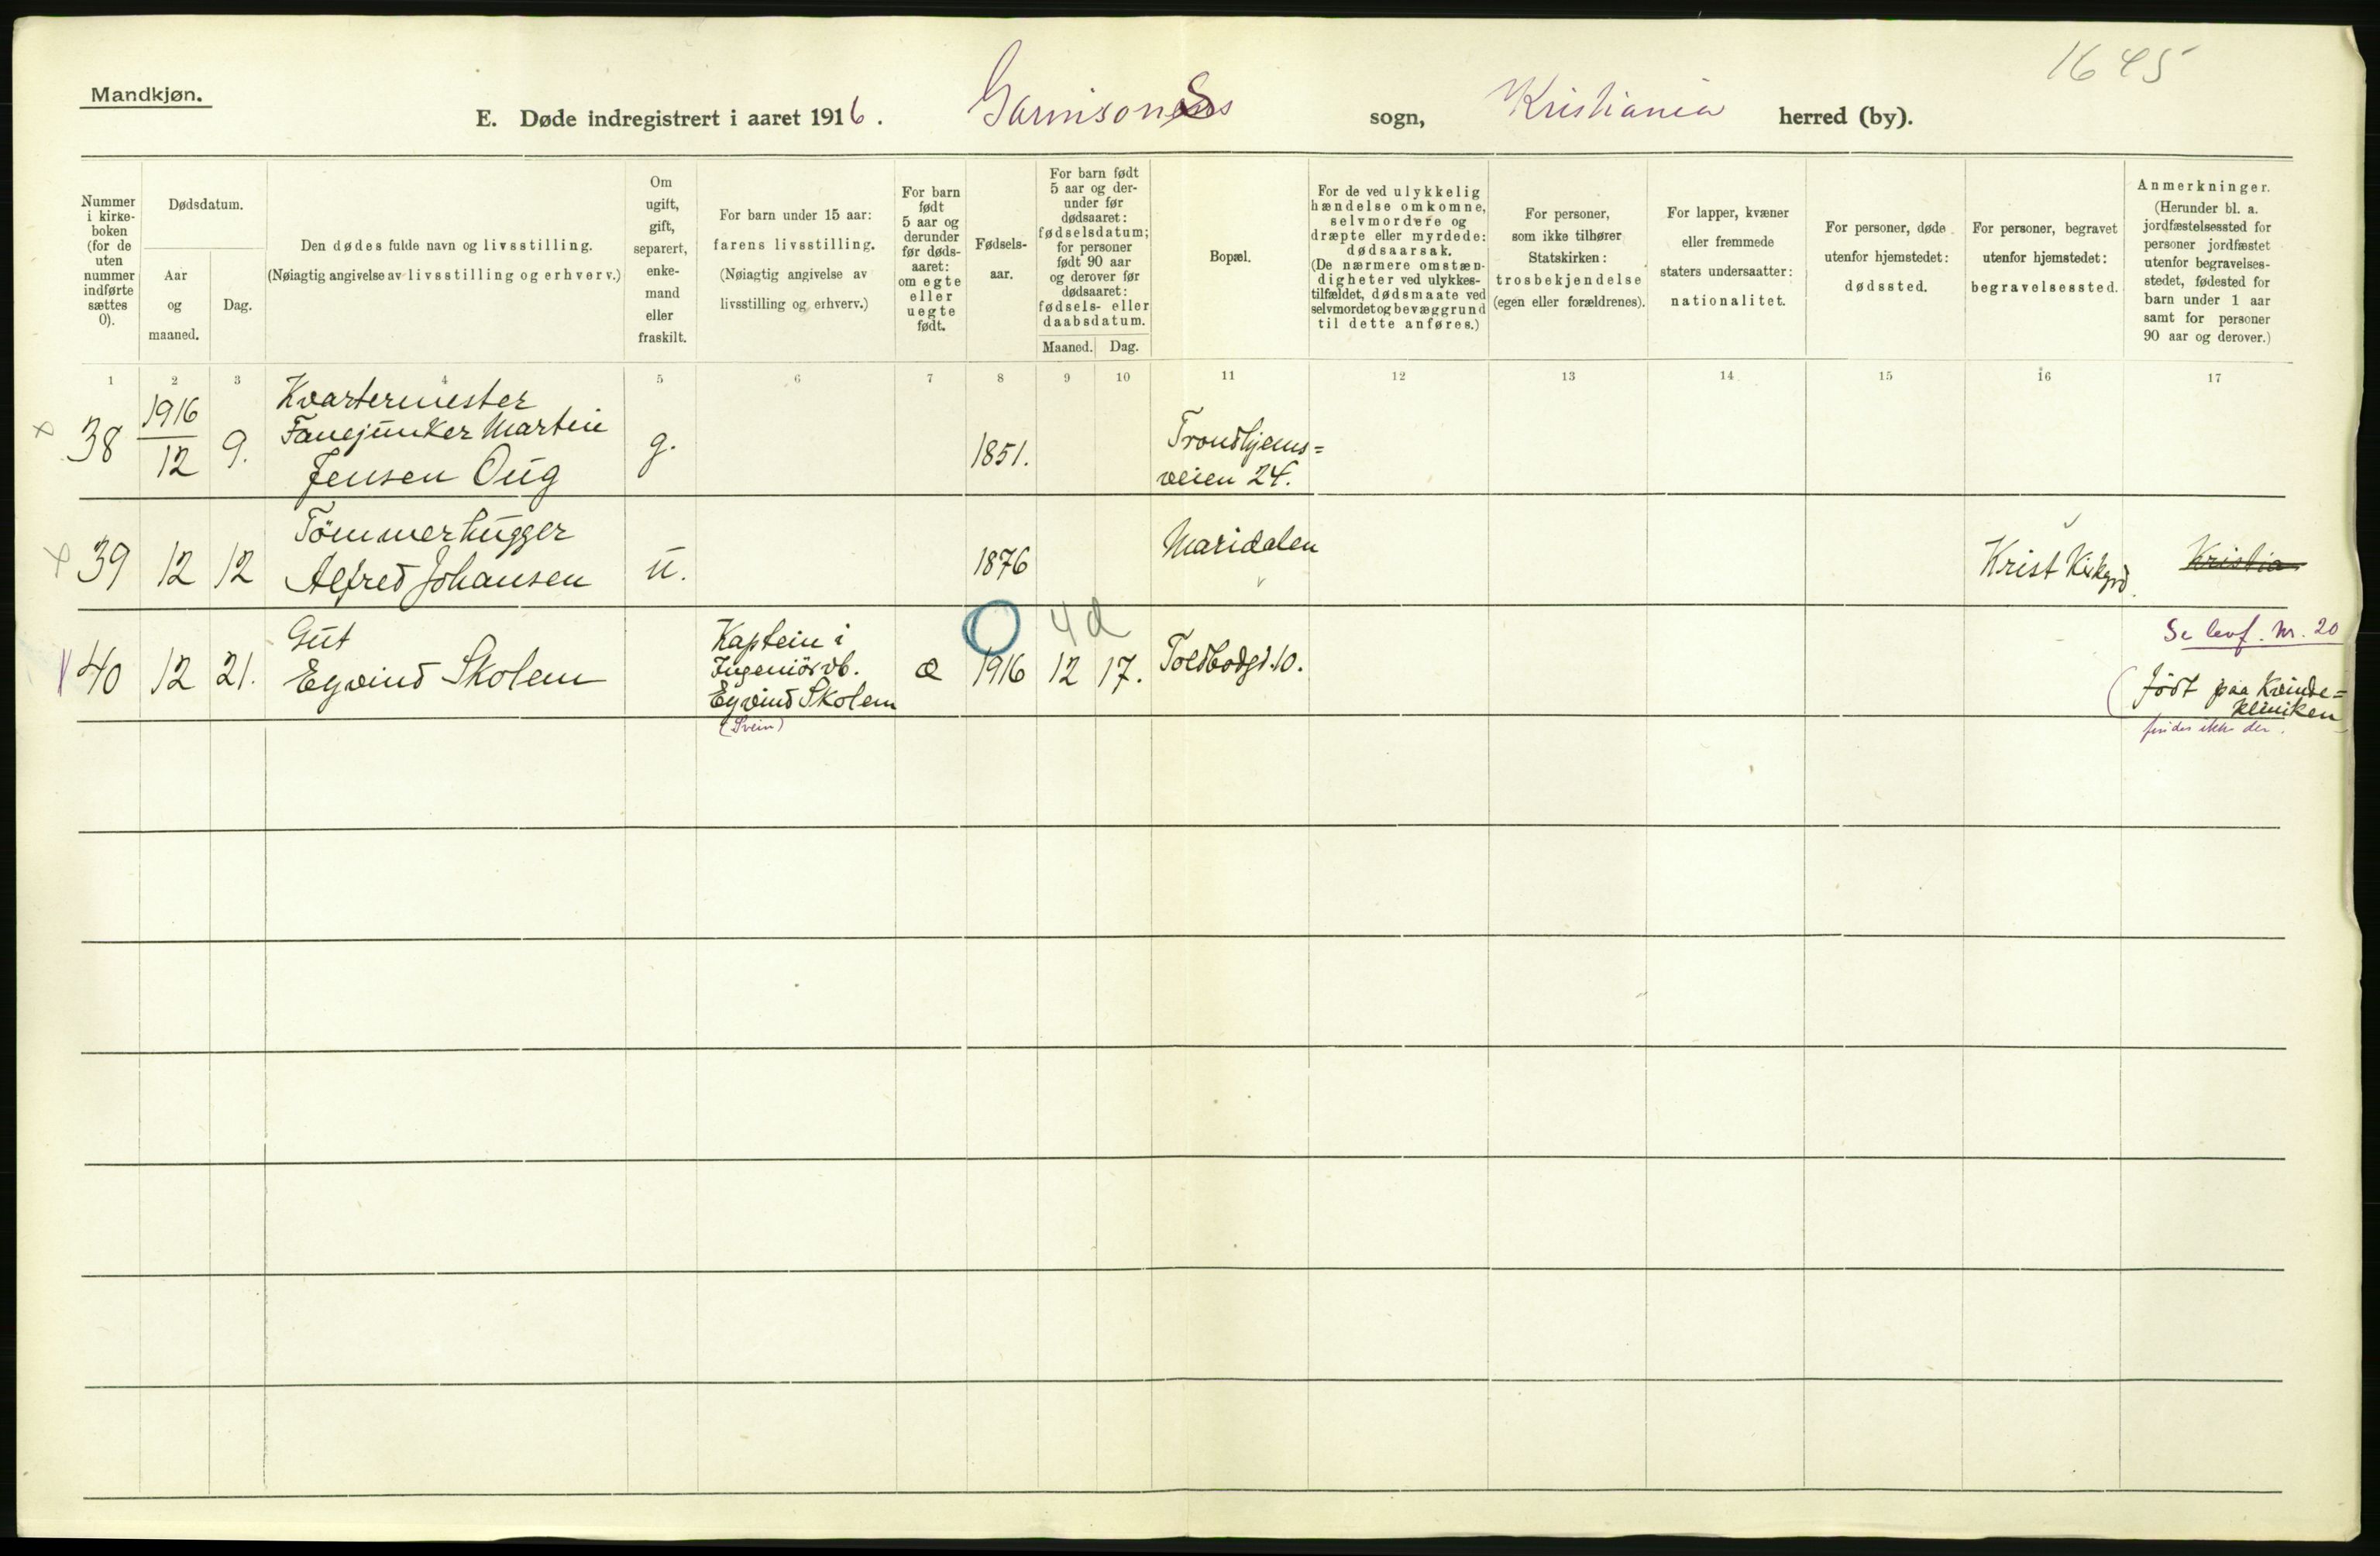 1645
Mandkjøn.
E. Døde indregistrert i aaret 1916.
Garnisons sogn, Kristiania herred (by).
Nummer i kirke-boken (for de uten nummer indførte sættes 0).
Dødsdatum.
Aar og maaned.
Dag.
Den dødes fulde navn og livsstilling.
(Nøiagtig angivelse av livsstilling og erhverv.)
Om ugift, gift, separert, enke-mand eller fraskilt.
For barn under 15 aar:
farens livsstilling.
(Nøiagtig angivelse av livsstilling og erhverv.)
For barn født 5 aar og derunder før døds-aaret: om egte eller uegte født.
Fødsels-aar.
For barn født 5 aar og der-under før dødsaaret: fødselsdatum; for personer født 90 aar og derover før dødsaaret: fødsels- eller daabsdatum.
Maaned. Dag.
Bopæl.
For de ved ulykkelig hændelse omkomne, selvmordere og dræpte eller myrdede: dødsaarsak.
(De nærmere omstæn-digheter ved ulykkes-tilfældet, dødsmaate ved selvmordet og bevæggrund til dette anføres.)
For personer, som ikke tilhører Statskirken: trosbekjendelse (egen eller forældrenes).
For lapper, kvæner eller fremmede staters undersaatter: nationalitet.
For personer, døde utenfor hjemstedet: dødssted.
For personer, begravet utenfor hjemstedet: begravelsessted.
Anmerkninger.
(Herunder bl. a. jordfæstelsessted for personer jordfæstet utenfor begravelses-stedet, fødested for barn under 1 aar samt for personer 90 aar og derover.)
1 2 3 4 5 6 7 8 9 10 11 12 13 14 15 16 17
x 38 1916 12 9. Kvartermester
Fanejunker Martin
Jensen Oug
g. 1851. Trondhjems=
veien 24.
x 39 12 12 Tömmerhugger
Alfred Johansen
u. 1876 Maridalen Krist Kirkgrd. Kristia
40 12 21. Gut
Eyvind Skolem
Kaptein i
Ingeniörvb.
Eyvind Skolem
(Svein)
e 0 4 d
1916 12 17. Toldbodgt. 10.
Se levf. Nr. 20
(født paa Kvinde=
kliniken
findes ikke der.